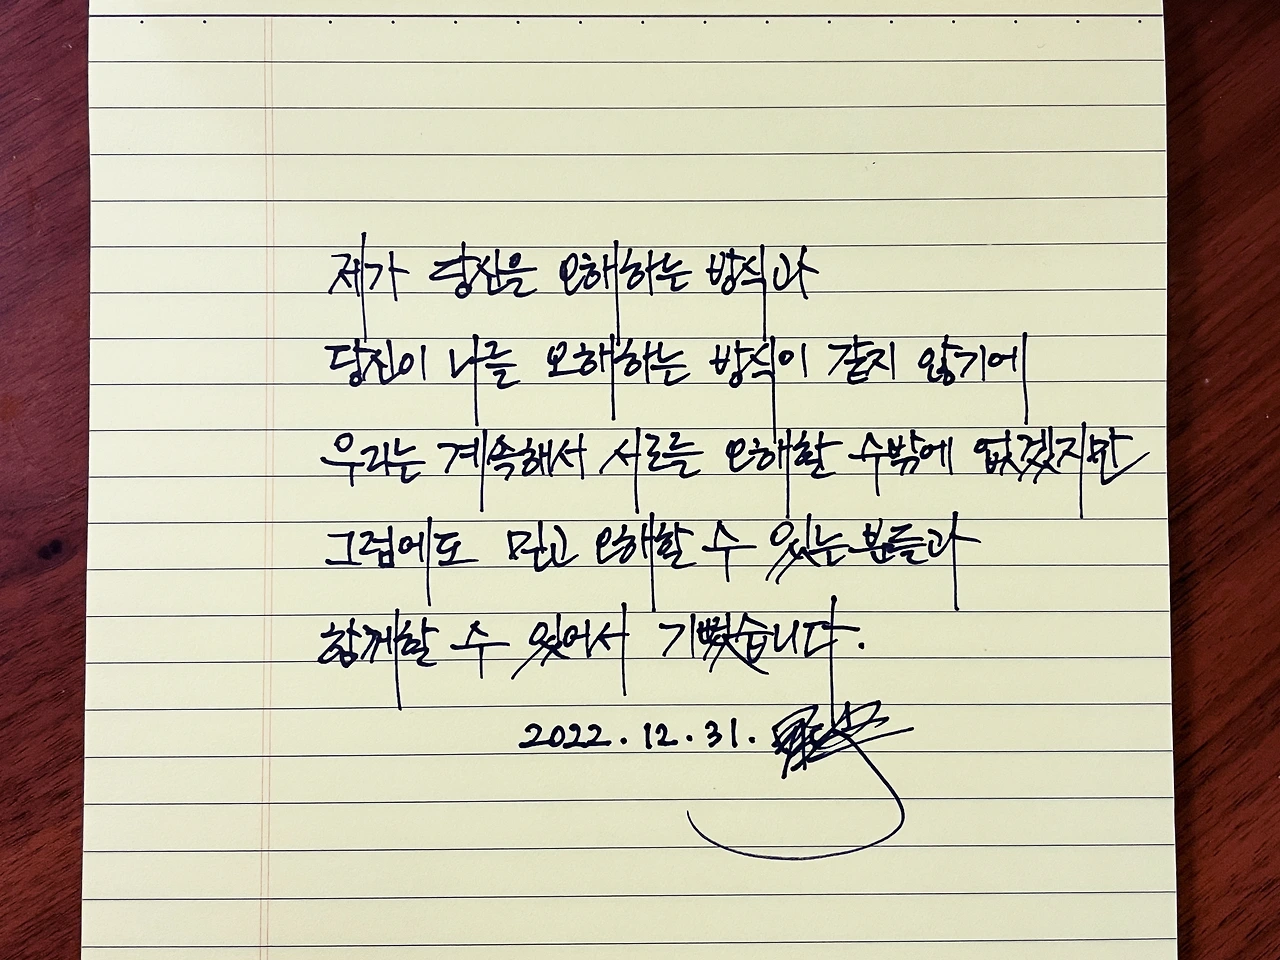 제가 당신을 오해하는 방식과
당신이 나를 오해하는 방식이 같지 않기에
우리는 계속해서 서로를 오해할 수밖에 없겠지만
그럼에도 믿고 오해할 수 있는 분들과
함께할 수 있어서 기뻤습니다.
2022. 12. 31.